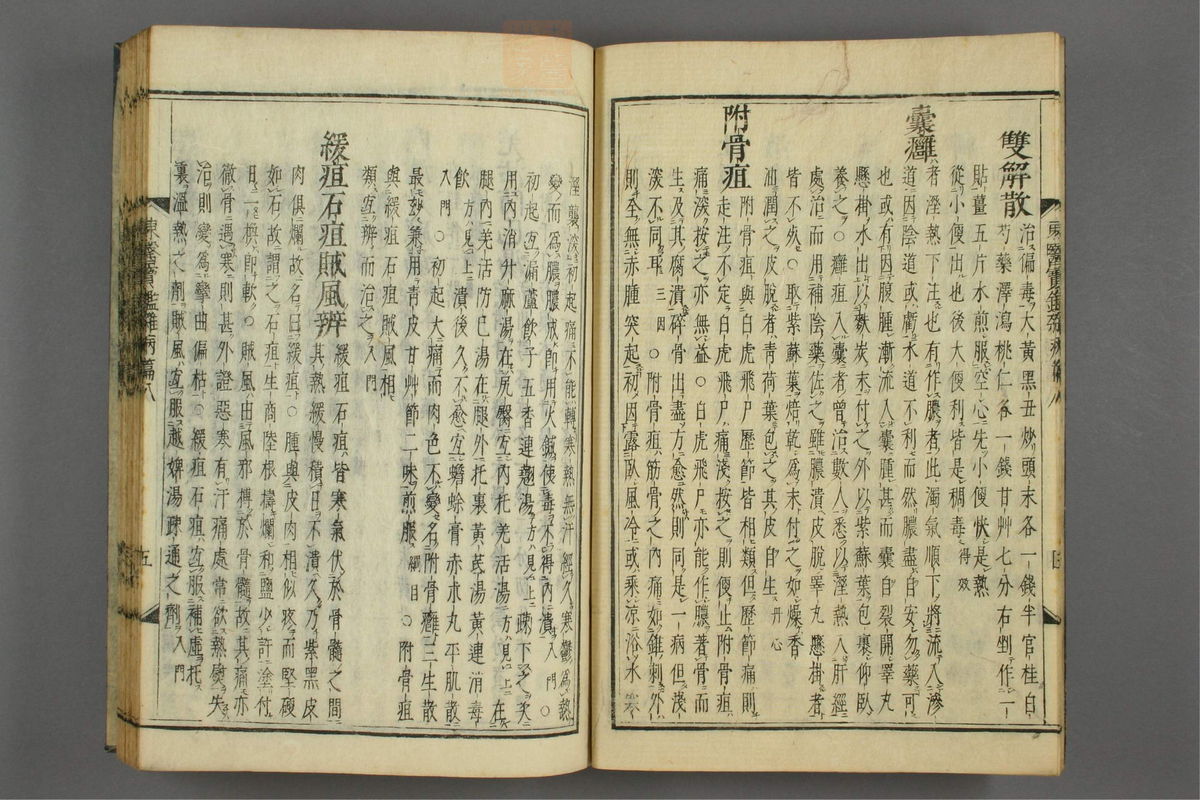 雙解散治偏毒大黃黑丑炒頭末各一錢半官桂白
芍藥澤瀉桃仁各一錢甘艸七分右剉作一
貼薑五片水煎服空心先小便快是熱
從小便出也後大便利皆是稠毒得效
囊癰者溼熱下注也有作膿者此濁氣順下將流入滲
道因陰道或虧水道不利而然膿盡自安勿藥可
也或有因腹腫漸流入囊腫甚而囊自裂開睪丸
懸掛水出以麩炭末付之外以紫蘇葉包裹仰臥
養之○癰疽入囊者曾治數人悉以溼熱入肝經
處治而用補陰藥佐之雖膿潰皮脫睪丸懸掛者
皆不死○取紫蘇葉焙乾爲末付之如燥香
油潤之皮脫者靑荷葉包之其皮自生丹心
附骨疽附骨疽與白虎飛尸歷節皆相類但歷節痛則
走注不定白虎飛尸痛淺按之則便止附骨疽
痛深按之亦無益○白虎飛尸亦能作膿著骨而
生及其腐潰碎骨出盡方愈然則同是一病但淺
深不同耳三因○附骨疽筋骨之內痛如錐刺外
則全無赤腫突起初因露臥風冷或乘涼浴水寒
溼襲深初起痛不能轉寒熱無汗經久寒鬱爲熱
變而爲膿膿成卽用火鍼使毒不得內潰入門○
初起宜漏蘆飮子五香連翹湯方見上疎下之次
用內消升麻湯在尻臀宜內托羌活湯方見上在
腿內羌活防巳湯在腿外托裏黃芪湯黃連消毒
飮方見上潰後久不愈宜蟾蛤膏赤朮丸平肌散
入門○初起大痛而肉色不變名附骨癰三生散
最妙兼用靑皮甘艸節二味煎服綱目○附骨疽
與緩疽石疽賊風相
類宜辨而治之入門
緩疽石疽賊風辨緩疽石疽皆寒氣伏於骨髓之間
其熱緩慢積日不潰久乃紫黑皮
肉俱爛故名曰緩疽○腫與皮肉相似疼而堅硬
如石故謂之石疽生商陸根擣爛和鹽少許塗付
日一換卽軟○賊風由風邪搏於骨髓故其痛亦
徹骨遇寒則甚外證惡寒有汗痛處常欲熱熨失
治則變爲攣曲偏枯○緩疽石疽宜服補虛托
裏溫熱之劑賊風宜服越婢湯疎通之劑入門
東醫寶鑑雜病篇八
五